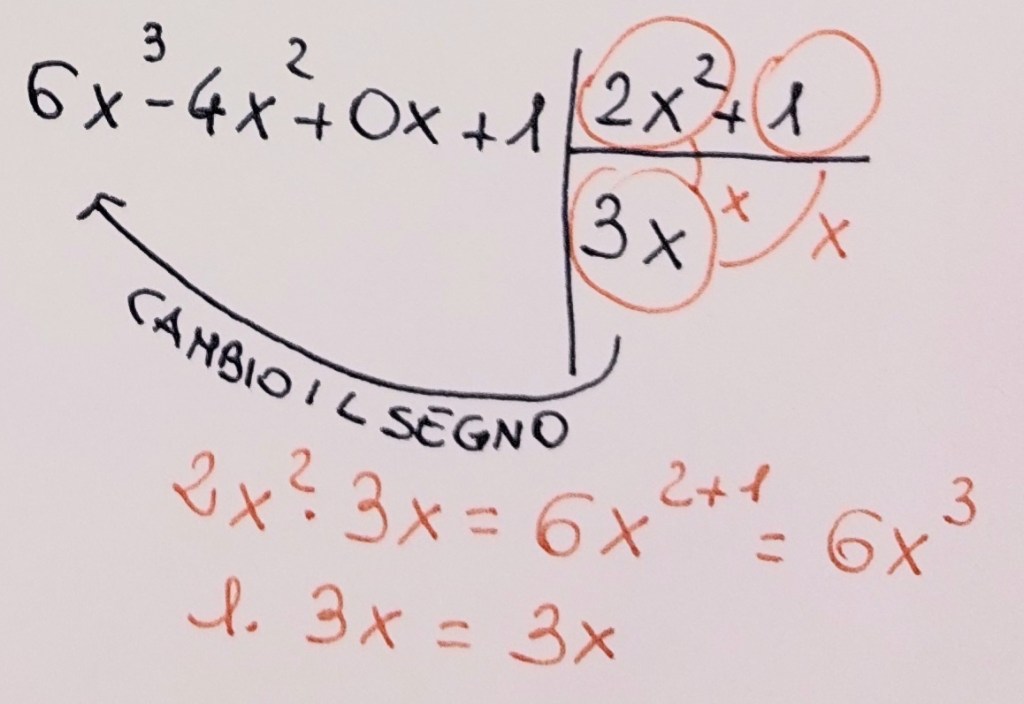 6x³-4x²+0x+1 2x²+1
3x x x
CAMBIO IL SEGNO
2x²·3x=6x²⁺¹=6x³
1·3x=3x